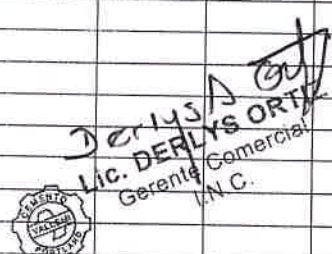 Derlys A Ort
Lic. DERLYS ORTIZ
Gerente Comercial
I.N.C.
CEMENTO
VALLEMI
PORTLAND